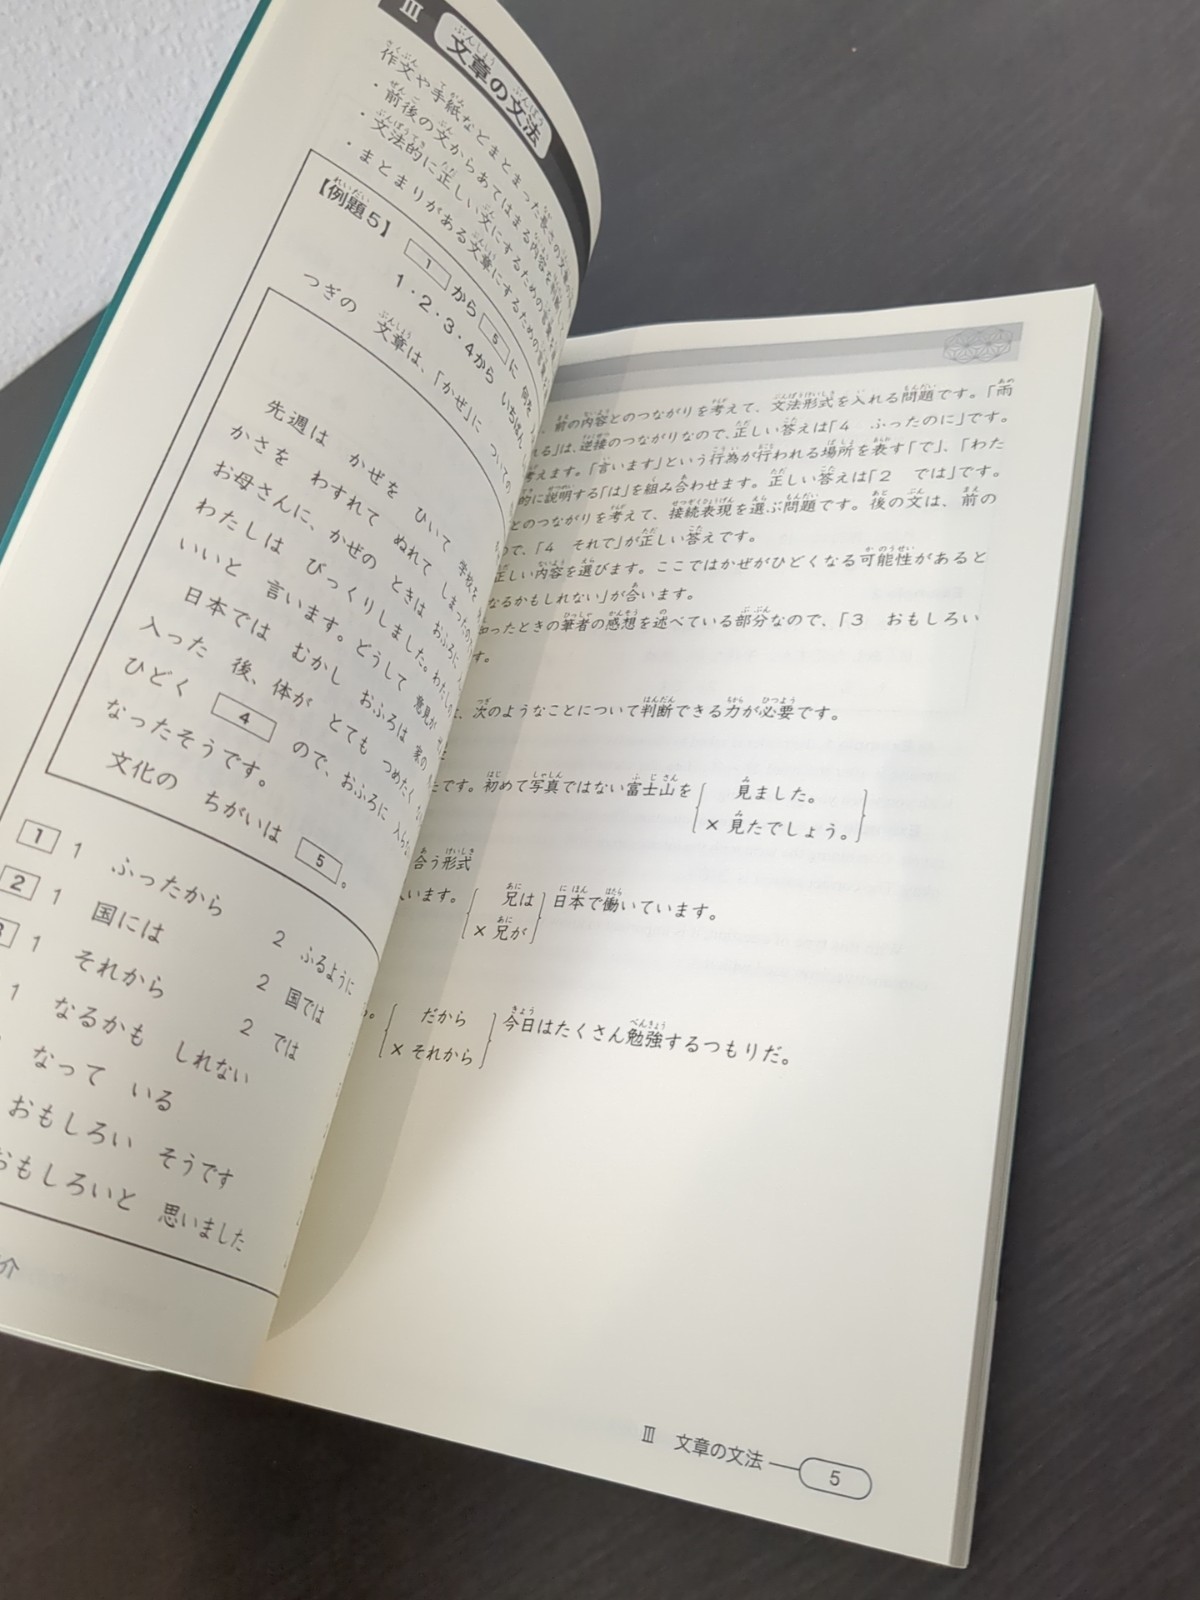 Ⅲ 文章の文法
作文や手紙などまとまった長さの文章の
・前後の文からあてはまる内容を
・文法的に正しい文にするための言葉
・まとまりがある文章にするための言葉
【例題5】 1 から 5 に 何を
1・2・3・4から いちばん
つぎの 文章は、「かぜ」に ついての
先週は かぜを ひいて 学校を
かさを わすれて ぬれて しまったの
お母さんに、かぜの ときは おふろに
わたしは びっくりしました。わたしの
いいと 言います。どうして 意見が
日本では むかし おふろは 家の
入った 後、体が とても つめたく
ひどく 4 ので、おふろに 入らな
なったそうです。
文化の ちがいは 5 。
1 1 ふったから 2 ふるように
2 1 国には 2 国では
3 1 それから 2 では
1 なるかも しれない
なって いる
おもしろい そうです
おもしろいと 思いました
介
前の内容とのつながりを考えて、文法形式を入れる問題です。「雨
れる」は、逆接のつながりなので、正しい答えは「4 ふったのに」です。
考えます。「言います」という行為が行われる場所を表す「で」、「わた
的に説明する「は」を組み合わせます。正しい答えは「2 では」です。
とのつながりを考えて、接続表現を選ぶ問題です。後の文は、前の
ので、「4 それで」が正しい答えです。
正しい内容を選びます。ここではかぜがひどくなる可能性があると
なるかもしれない」が合います。
知ったときの筆者の感想を述べている部分なので、「3 おもしろい
す。
次のようなことについて判断できる力が必要です。
たです。初めて写真ではない富士山を 見ました。
× 見たでしょう。
合う形式
います。 兄は 日本で働いています。
× 兄が
だから 今日はたくさん勉強するつもりだ。
× それから
Ⅲ 文章の文法 5